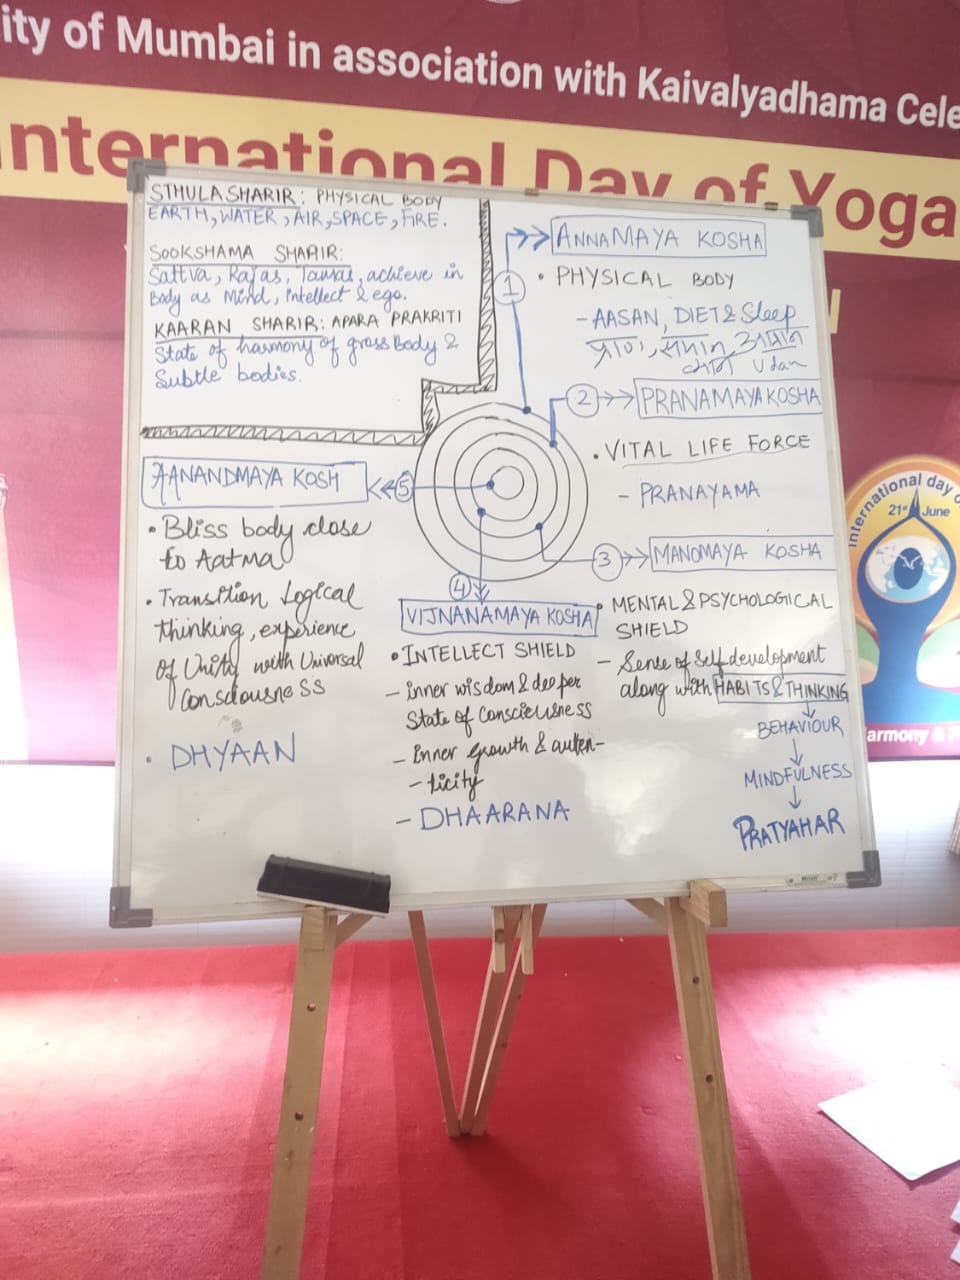 ity of Mumbai in association with Kaivalyadhama Cele
nternational Day of Yoga
STHULA SHARIR: PHYSICAL BODY
EARTH, WATER, AIR, SPACE, FIRE.
SOOKSHAMA SHARIR:
Sattva, Rajas, Tamas, achieve in
Body as Mind, intellect & ego.
KAARAN SHARIR: APARA PRAKRITI
State of harmony of gross Body &
Subtle bodies.
1
ANNAMAYA KOSHA
• PHYSICAL BODY
- AASAN, DIET & Sleep
प्राण, समान, अपान
व्यान Udan
2
PRANAMAYA KOSHA
• VITAL LIFE FORCE
- PRANAYAMA
3
MANOMAYA KOSHA
• MENTAL & PSYCHOLOGICAL
SHIELD
- Sense of Self development
along with HABITS & THINKING
BEHAVIOUR
MINDFULNESS
PRATYAHAR
4
VIJNANAMAYA KOSHA
• INTELLECT SHIELD
- inner wisdom & deeper
State of Consciousness
- Inner growth & authen-
- ticity
- DHAARANA
5
AANANDMAYA KOSH
• Bliss body close
to Aatma
• Transition Logical
thinking, experience
of Unity with Universal
Consciousness
• DHYAAN
international day o
21st June
armony &